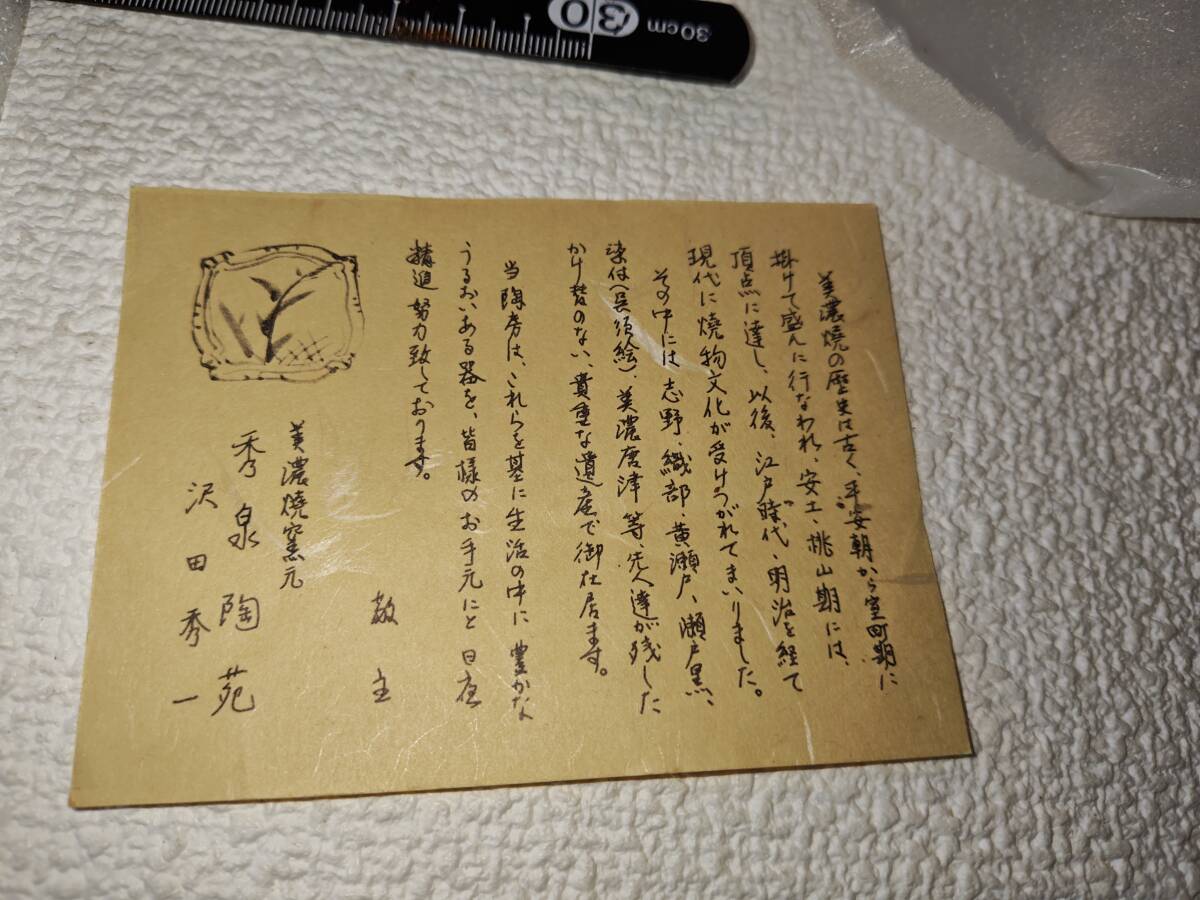 30
30cm
美濃焼の歴史は古く、平安朝から室町期に
掛けて盛んに行なわれ、安土、桃山期には、
頂点に達し、以後、江戸時代、明治を経て
現代に焼物文化が受けつがれてまいりました。
その中には志野、織部、黄瀬戸、瀬戸黒、
染付(呉須絵)、美濃唐津等、先人達が残した
かけ替のない、貴重な遺産で御仕居ます。
当陶房は、これらを基に生活の中に豊かな
うるおいある器を、皆様のお手元にと日夜
精進努力致しております。
敬主
美濃焼窯元
秀泉陶苑
沢田秀一